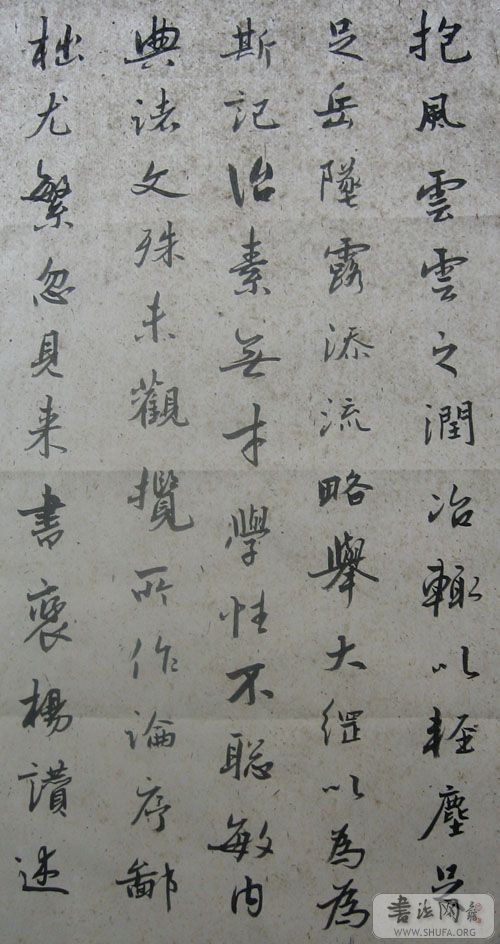 抱風雲雲之潤治輒以輕塵足
足岳墜露添流略舉大綱以為為
斯記治素無才學性不聡敏内
典諸文殊未觀攬所作論序鄙
柮尤繁忽見来書褒楊讃述
書法网
WWW.SHUFA.ORG